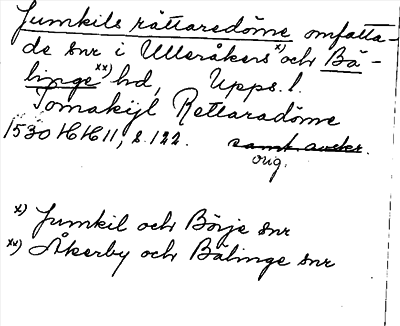 Jumkils rättaredöme omfatta-
de snr i Ulleråkers x) och Bä-
linge xx) hd, Upps. l.
Jomakijl Rettaradöme
1530 HH 11, s. 122. samt. avskr.
orig.
x) Jumkil och Börje snr
xx) Åkerby och Bälinge snr